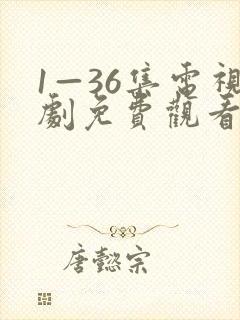 1—36集電視
劇免費觀看
唐懿宗